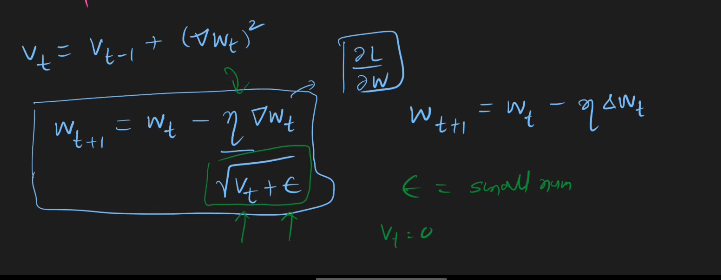 v_t = v_{t-1} + (∇w_t)^2
w_{t+1} = w_t - η ∇w_t / √(v_t + ϵ)
∂L / ∂w
w_{t+1} = w_t - η Δw_t
ϵ = small num
v_t = 0